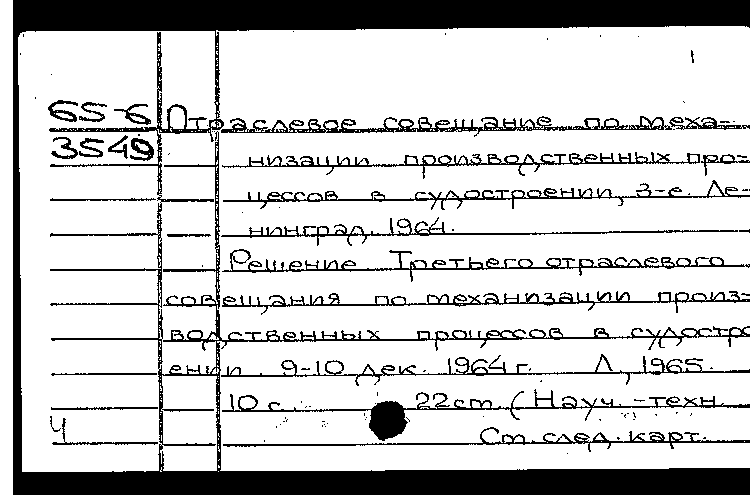 65-6
3549
Отраслевое совещание по меха-
низации производственных про-
цессов в судостроении, 3-е. Ле-
нинград. 1964.
Решение Третьего отраслевого
совещания по механизации произ-
водственных процессов в судостро
ении. 9-10 дек. 1964 г. Л, 1965.
10 с. 22 cm. (Науч.-техн
Ч
См. след. карт.